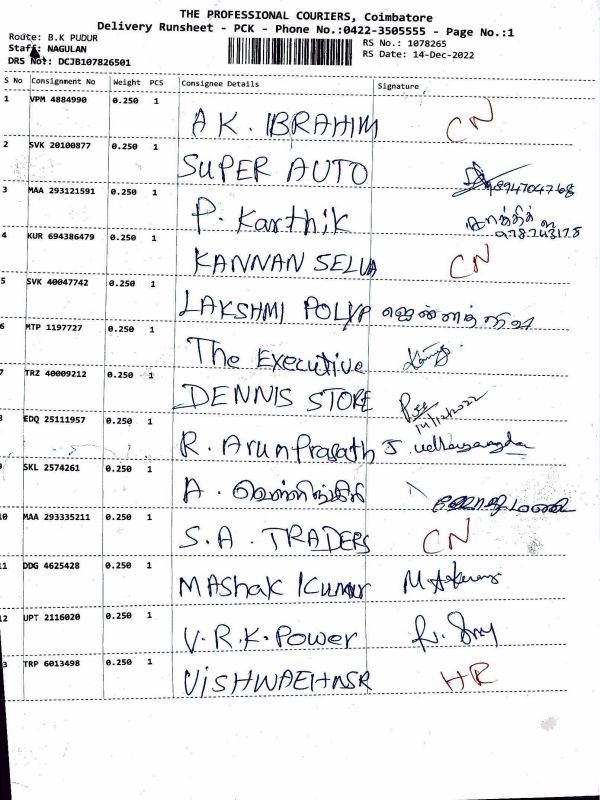 THE PROFESSIONAL COURIERS, Coimbatore
Delivery Runsheet - PCK - Phone No.:0422-3505555 - Page No.:1
Route: B.K PUDUR
RS No.: 1078265
Staff: NAGULAN
RS Date: 14-Dec-2022
DRS No: DCJB107826501
S No Consignment No Weight PCS Consignee Details Signature
1 VPM 4884990 0.250 1 A K. IBRAHIM CN
2 SVK 20100877 0.250 1 SUPER AUTO 894704768
3 MAA 293121591 0.250 1 P. Karthik கார்த்திக்
4 KUR 694386479 0.250 1 KANNAN SELVA CN
5 SVK 40047742 0.250 1 LAKSHMI POLYP
6 MTP 1197727 0.250 1 The Executive
7 TRZ 40009212 0.250 1 DENNIS STORE 14/12/2022
8 EDQ 25111957 0.250 1 R. ArunPrasath J
9 SKL 2574261 0.250 1 A.
10 MAA 293335211 0.250 1 S.A. TRADERS CN
11 DDG 4625428 0.250 1 MAShak Kumar
12 UPT 2116020 0.250 1 V.R.K. Power
13 TRP 6013498 0.250 1 HR